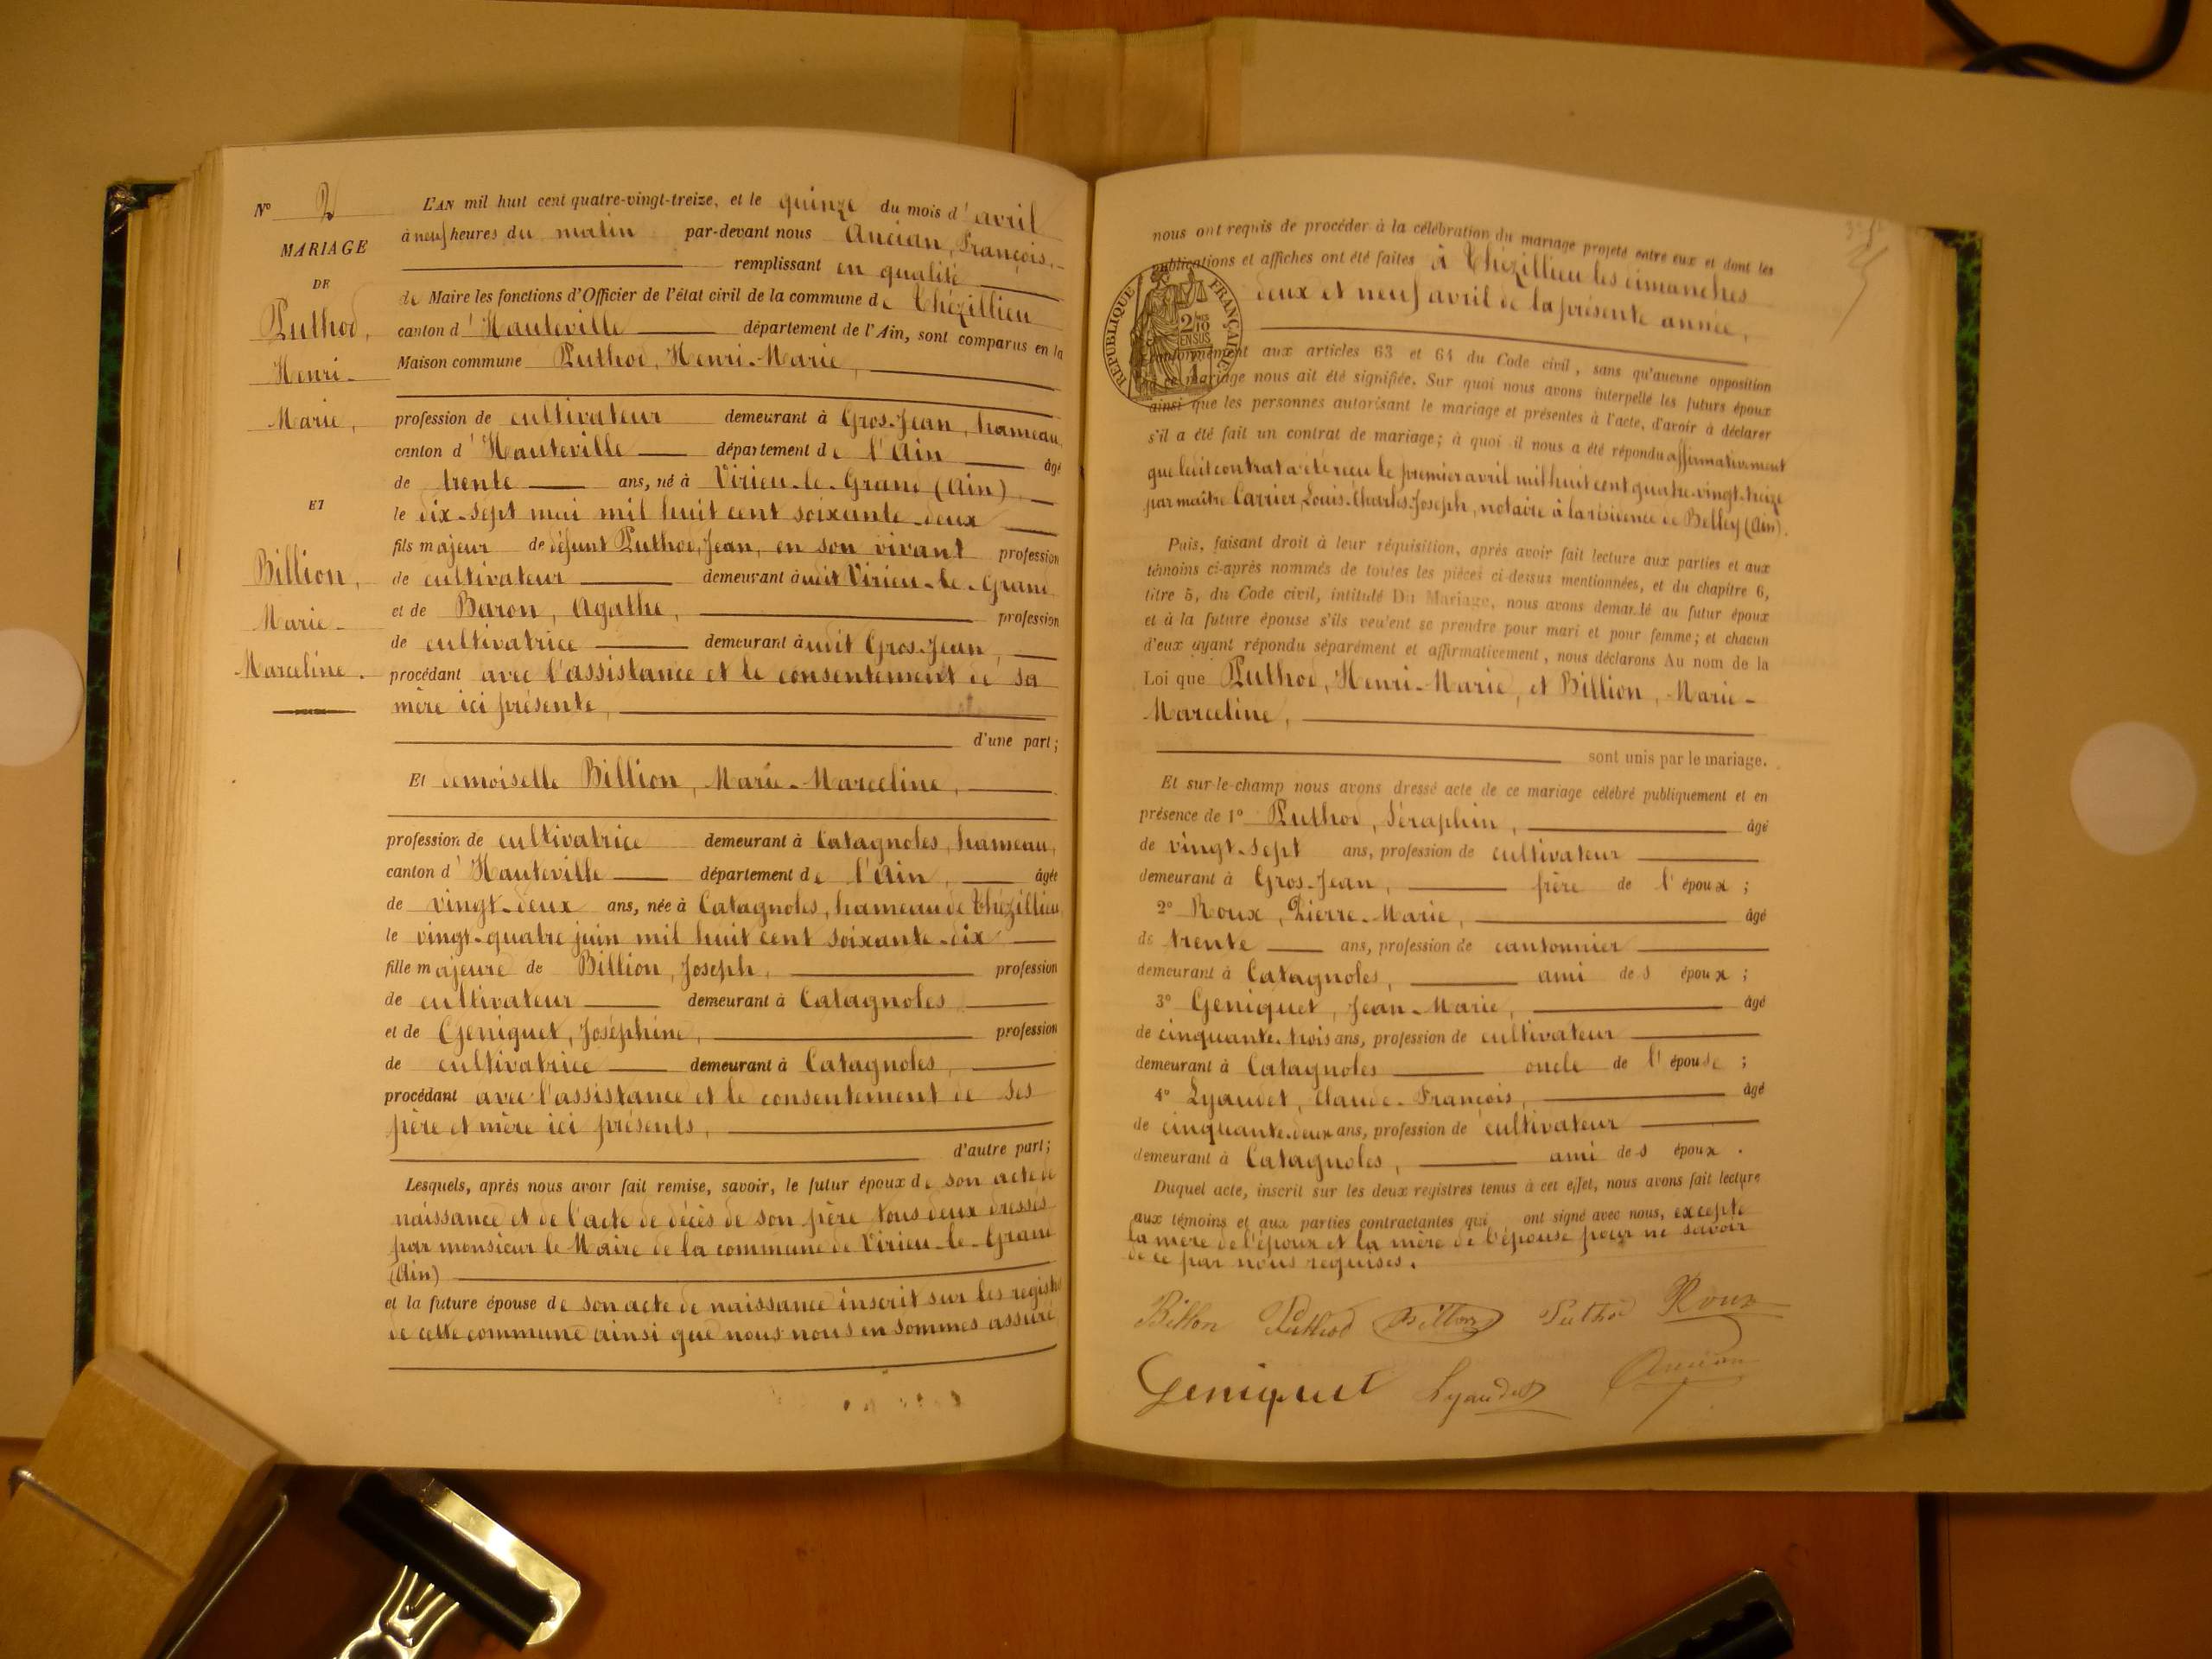 N° 2
MARIAGE
DE
Puthod,
Henri-
Marie,
ET
Billion,
Marie-
Marceline.
L'AN mil huit cent quatre-vingt-treize, et le quinze du mois d'avril
à neuf heures du matin par-devant nous Ancian, François,
remplissant en qualité
de Maire les fonctions d'Officier de l'état civil de la commune de Thézillieu
canton d'Hauteville département de l'Ain, sont comparus en la
Maison commune Puthod, Henri-Marie,
profession de cultivateur demeurant à Gros-Jean, hameau,
canton d'Hauteville département de l'Ain âgé
de trente ans, né à Virieu-le-Grand (Ain)
le dix-sept mai mil huit cent soixante-deux
fils majeur de défunt Puthod, Jean, en son vivant profession
de cultivateur demeurant audit Virieu-le-Grand
et de Baron, Agathe, profession
de cultivatrice demeurant audit Gros-Jean,
procédant avec l'assistance et le consentement de sa
mère ici présente,
d'une part;
Et demoiselle Billion, Marie-Marceline,
profession de cultivatrice demeurant à Catagnoles, hameau,
canton d'Hauteville département de l'Ain, âgée
de vingt-deux ans, née à Catagnoles, hameau de Thézillieu
le vingt-quatre juin mil huit cent soixante-dix
fille majeure de Billion, Joseph, profession
de cultivateur demeurant à Catagnoles
et de Geniquet, Joséphine, profession
de cultivatrice demeurant à Catagnoles,
procédant avec l'assistance et le consentement de ses
père et mère ici présents,
d'autre part;
Lesquels, après nous avoir fait remise, savoir, le futur époux de son acte de
naissance et de l'acte de décès de son père tous deux dressés
par monsieur le Maire de la commune de Virieu-le-Grand
(Ain)
et la future épouse de son acte de naissance inscrit sur les registres
de cette commune ainsi que nous nous en sommes assuré
nous ont requis de procéder à la célébration du mariage projeté entre eux et dont les
publications et affiches ont été faites à Thézillieu les dimanches
deux et neuf avril de la présente année,
RÉPUBLIQUE FRANÇAISE
2/10 EN SUS
conformément aux articles 63 et 64 du Code civil, sans qu'aucune opposition
à ce mariage nous ait été signifiée. Sur quoi nous avons interpellé les futurs époux
ainsi que les personnes autorisant le mariage et présentes à l'acte, d'avoir à déclarer
s'il a été fait un contrat de mariage; à quoi il nous a été répondu affirmativement
que ledit contrat a été reçu le premier avril mil huit cent quatre-vingt-treize
par maître Carrier, Louis-Charles-Joseph, notaire à la résidence de Belley (Ain).
Puis, faisant droit à leur réquisition, après avoir fait lecture aux parties et aux
témoins ci-après nommés de toutes les pièces ci-dessus mentionnées, et du chapitre 6,
titre 5, du Code civil, intitulé Du Mariage, nous avons demandé au futur époux
et à la future épouse s'ils veulent se prendre pour mari et pour femme; et chacun
d'eux ayant répondu séparément et affirmativement, nous déclarons Au nom de la
Loi que Puthod, Henri-Marie, et Billion, Marie-
Marceline,
sont unis par le mariage.
Et sur-le-champ nous avons dressé acte de ce mariage célébré publiquement et en
présence de 1° Puthod, Séraphin, âgé
de vingt-sept ans, profession de cultivateur
demeurant à Gros-Jean, frère de l'époux;
2° Roux, Pierre-Marie, âgé
de trente ans, profession de cantonnier
demeurant à Catagnoles, ami des époux;
3° Geniquet, Jean-Marie, âgé
de cinquante-trois ans, profession de cultivateur
demeurant à Catagnoles oncle de l'épouse;
4° Lyaudet, Claude-François, âgé
de cinquante-deux ans, profession de cultivateur
demeurant à Catagnoles, ami des époux.
Duquel acte, inscrit sur les deux registres tenus à cet effet, nous avons fait lecture
aux témoins et aux parties contractantes qui ont signé avec nous, excepté
la mère de l'époux et la mère de l'épouse pour ne savoir
de ce par nous requises.
Billon Puthod Billon Puthod Roux
Geniquet Lyaudet Ancian